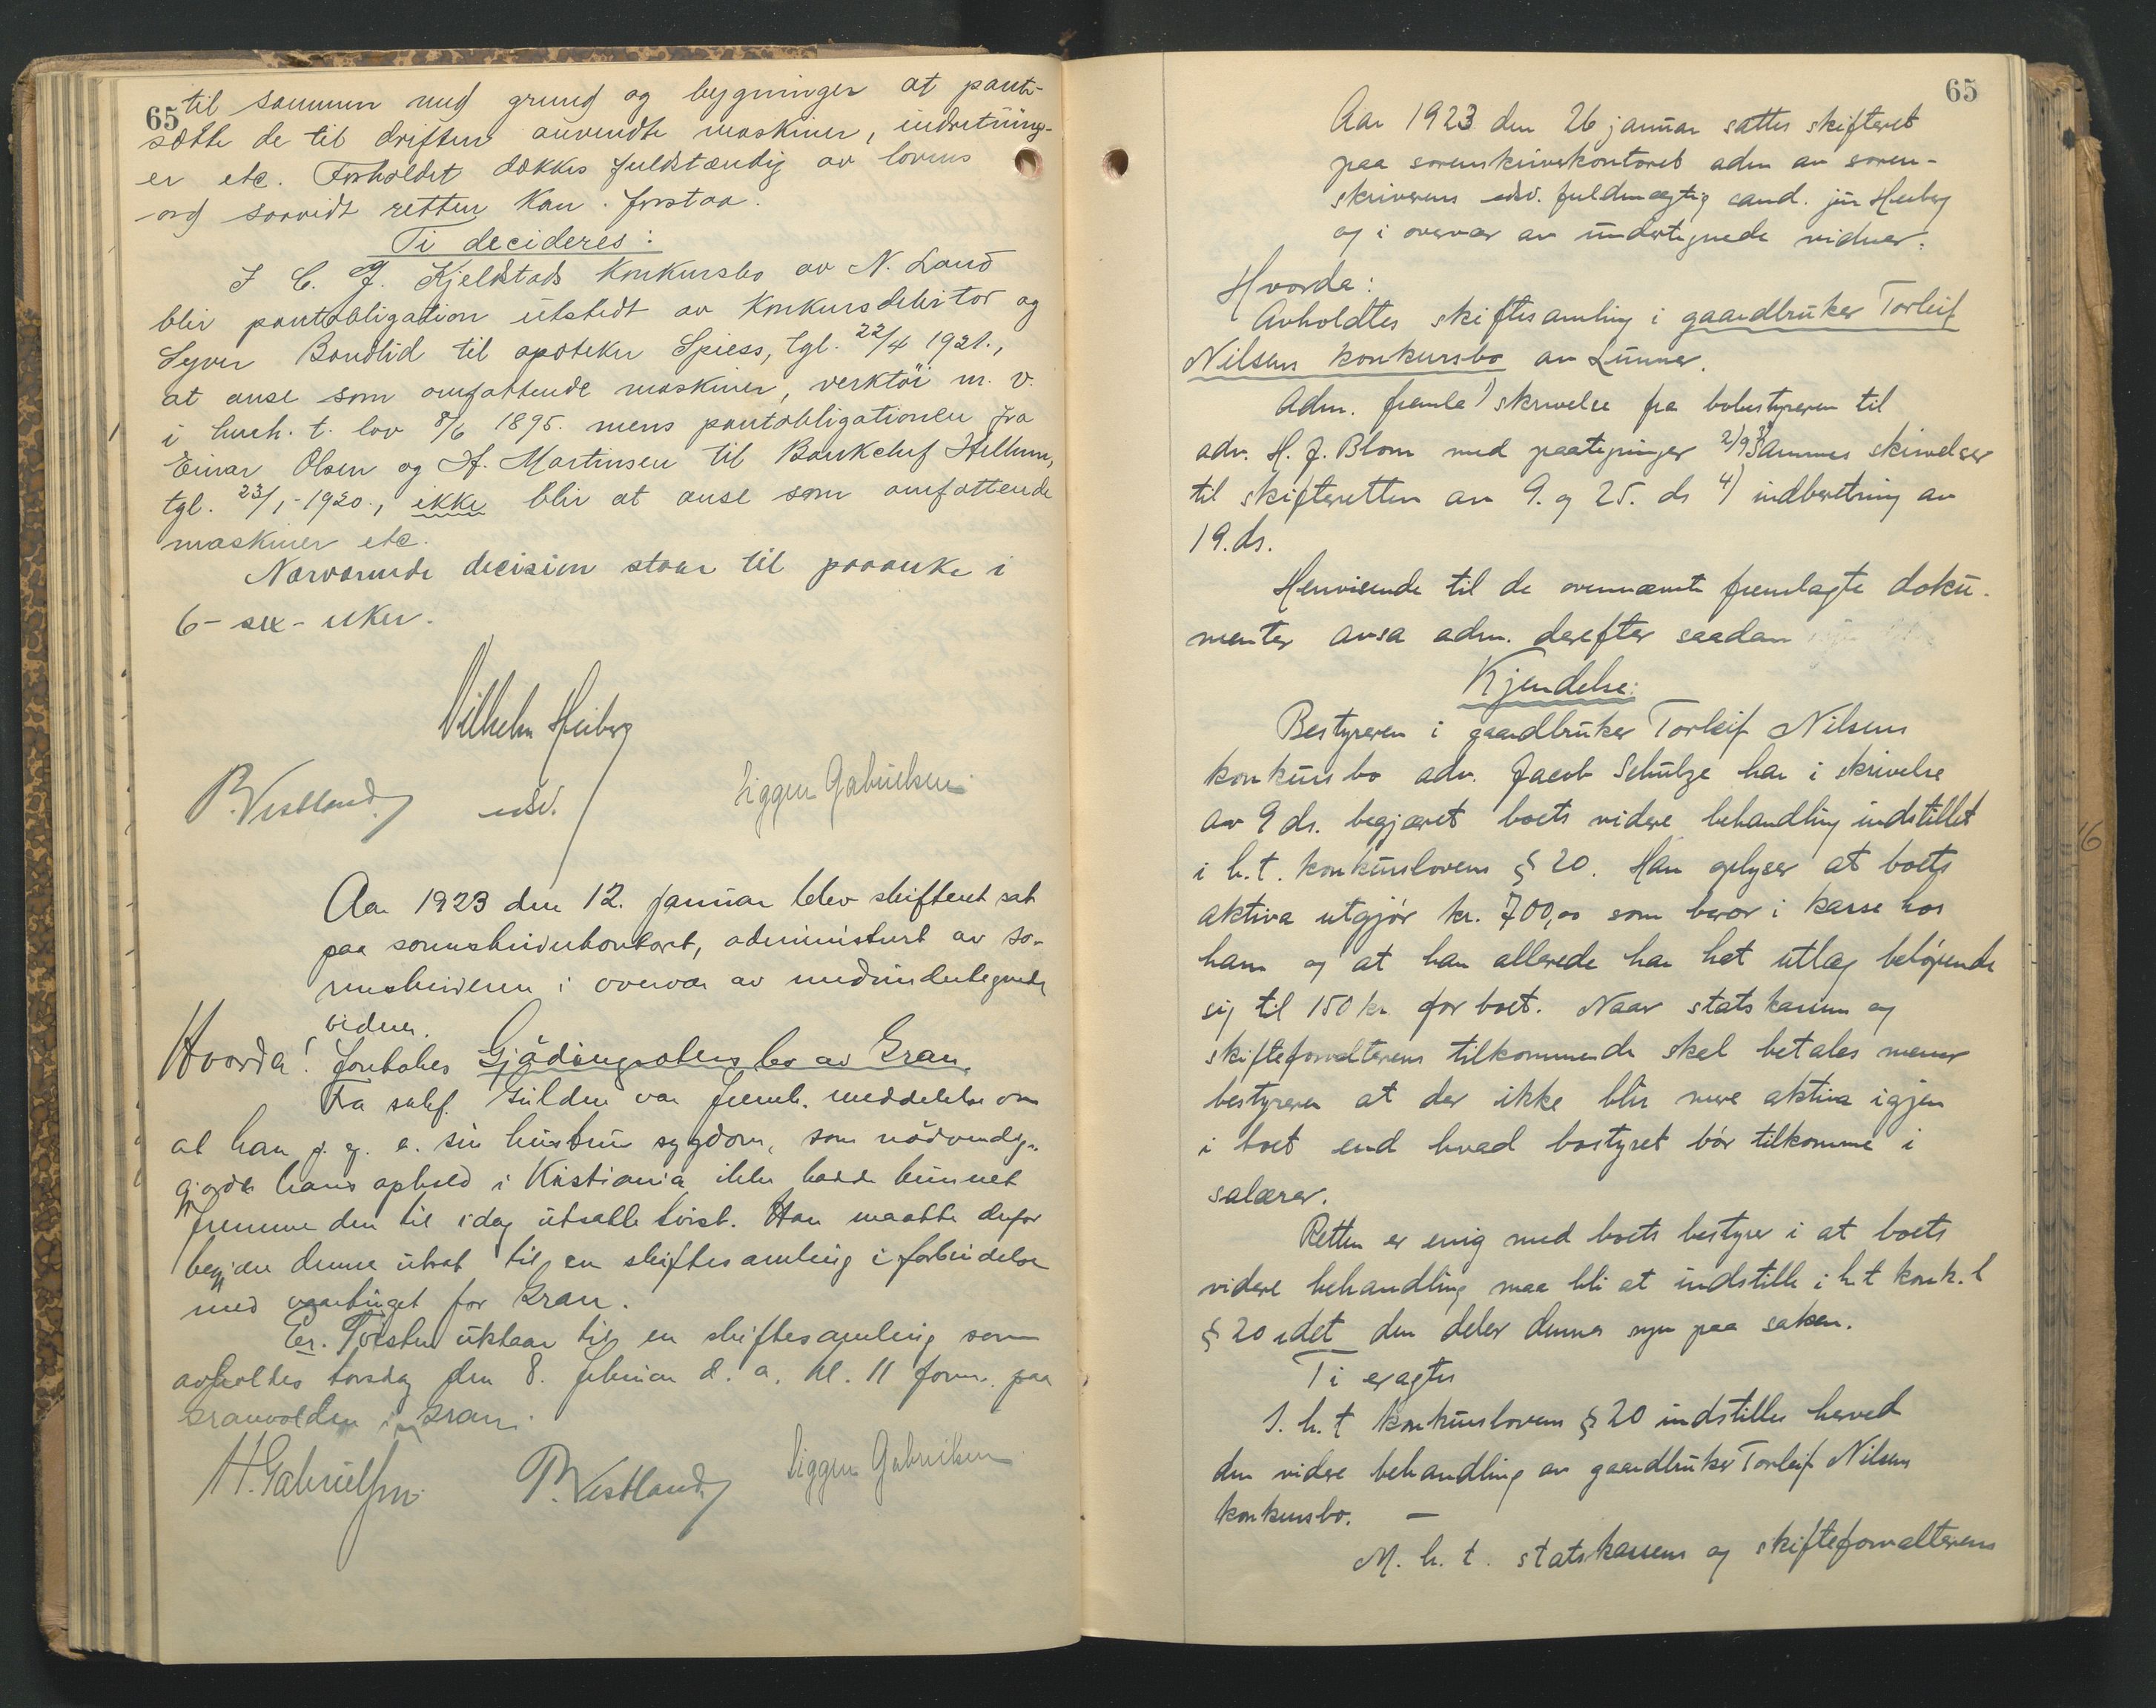 65
til sammen med grund og bygninger at pant-
sætte de til driften anvendte maskiner, indretning-
er etc. Forholdet dækkes fuldstændig av lovens
ord saavidt retten kan forstaa.
Ti decideres:
I C. J. Kjeldstads konkursbo av N. Land
blir pantobligation utstedt av konkursdebitor og
Syver Bondlid til apoteker Spiess, tgl. 22/4 1921.,
at anse som omfattende maskiner, verktöi m. v.
i hnh. t. lov 8/6 1895. mens pantobligationen fra
Einar Olsen og H. Martinsen til Bankchef Hillum,
tgl. 23/1-1920., ikke blir at anse som omfattende
maskiner etc.
Nærværende decision staar til paaanke i
6 - sex - uker.
Vilhelm Heiberg
P. Vestland edsv. Siggen Gabrielsen
Aar 1923 den 12. januar blev skifteret sat
paa sorenskriverkontoret, administrert av so-
renskriveren i overvær av medundertegnede
vidner.
Hvorda! foretokes Gjödingsolens bo av Gran.
Fra saksf. Gulden var fremk. meddelelse om
at han p. g. a. sin hustrus sygdom, som nödvendig-
gjorde hans ophold i Kristiania ikke hadde kunnet
fremme den til idag utsatte tvist. Han maatte derfor
begjære denne utsat til en skiftesamling i forbindelse
med vaartinget for Gran.
Er. Tvisten utstaar til en skiftesamling som
avholdes torsdag den 8. februar d. a. kl. 11 form. paa
Granvolden i Gran.
H. Gabrielsen P. Vestland Siggen Gabrielsen
65
Aar 1923 den 26 januar sattes skifteret
paa sorenskriverkontoret adm av soren-
skriverens edsv. fuldmægtig cand. jur Heiberg
og i overvær av undertegnede vidner.
Hvorda:
Avholdtes skiftesamling i gaardbruker Torleif
Nilsens konkursbo av Lunner.
Adm. fremla 1) skrivelse fra bobestyreren til
adv. H. J. Blom med paategninger 2) 9 3) Sammes skrivelser
til skifteretten av 9. og 25. ds 4) indberetning av
19. ds.
Henvisende til de ovennævnte fremlagte doku-
menter avsa adm. derefter saadan
Kjendelse:
Bestyreren i gaardbruker Torleif Nilsens
konkursbo adv. Jacob Schulze har i skrivelse
av 9 ds. begjæret boets videre behandling indstillet
i h. t. konkurslovens § 20. Han oplyser at boets
aktiva utgjör kr. 700,00 som beror i kasse hos
ham og at han allerede har hat utlæg belöpende
sig til 150 kr for boet. Naar statskassen og
skifteforvalterens tilkommende skal betales mener
bestyreren at der ikke blir mere aktiva igjen
i boet end hvad bostyret bör tilkomme i
salærer.
Retten er enig med boets bestyrer i at boets
videre behandling maa bli at indstille i h t konk. l
§ 20 idet den deler dennes syn paa saken.
Ti eragtes
I. h. t konkurslovens § 20 indstilles herved
den videre behandling av gaardbruker Torleif Nilsens
konkursbo. —
M. h. t. statskassens og skifteforvalterens
16